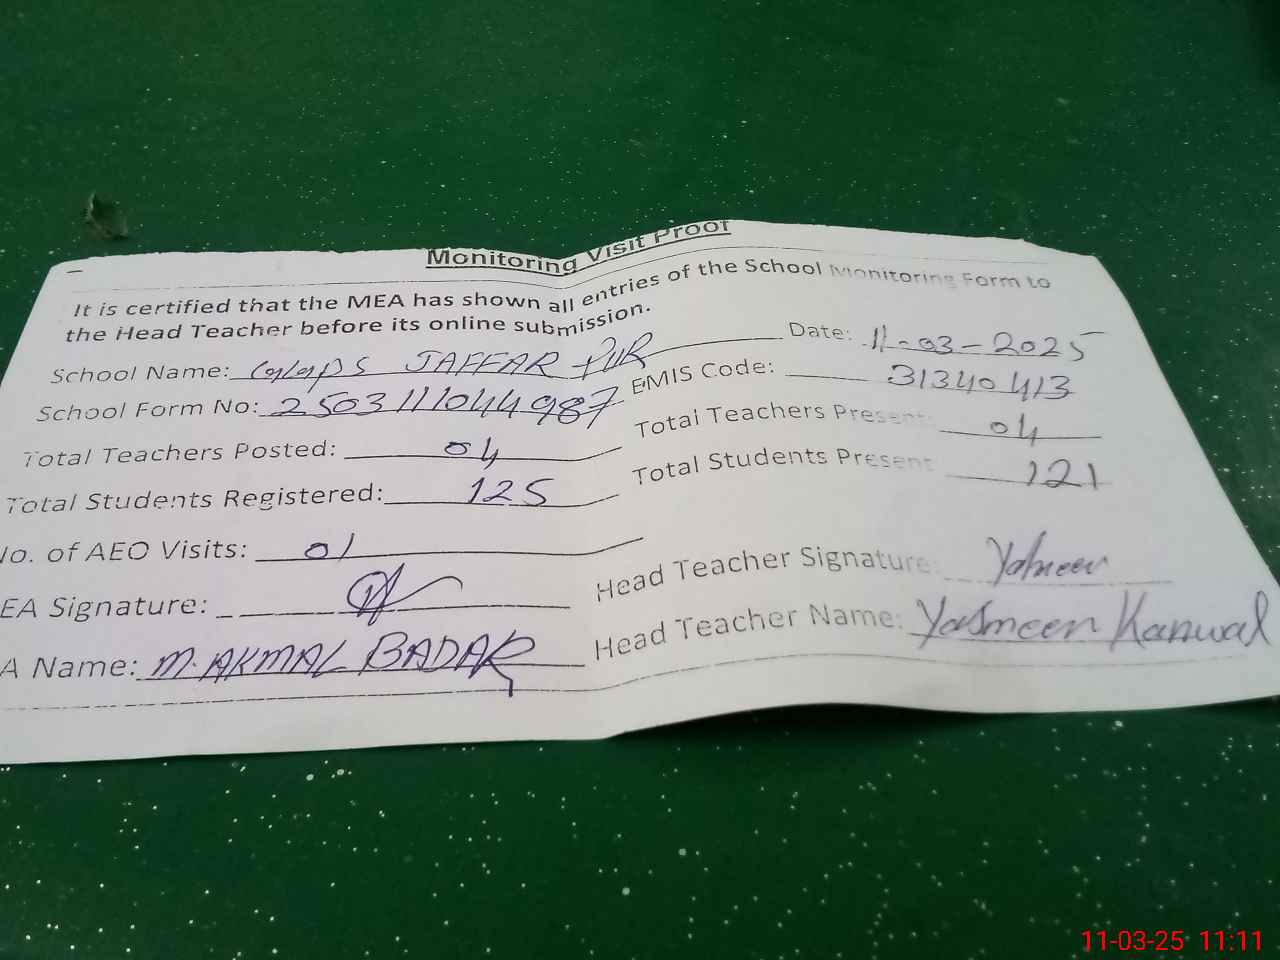 Monitoring Visit Proof
It is certified that the MEA has shown all entries of the School Monitoring Form to
the Head Teacher before its online submission.
School Name: GGPS JAFFAR PUR Date: 11-03-2025
School Form No: 2503111044987 EMIS Code: 31340413
Total Teachers Posted: 04 Total Teachers Present: 04
Total Students Registered: 125 Total Students Present 121
No. of AEO Visits: 01
EA Signature: Head Teacher Signature: Yasmeen
A Name: M. AKMAL BADAR Head Teacher Name: Yasmeen Kanwal
11-03-25 11:11